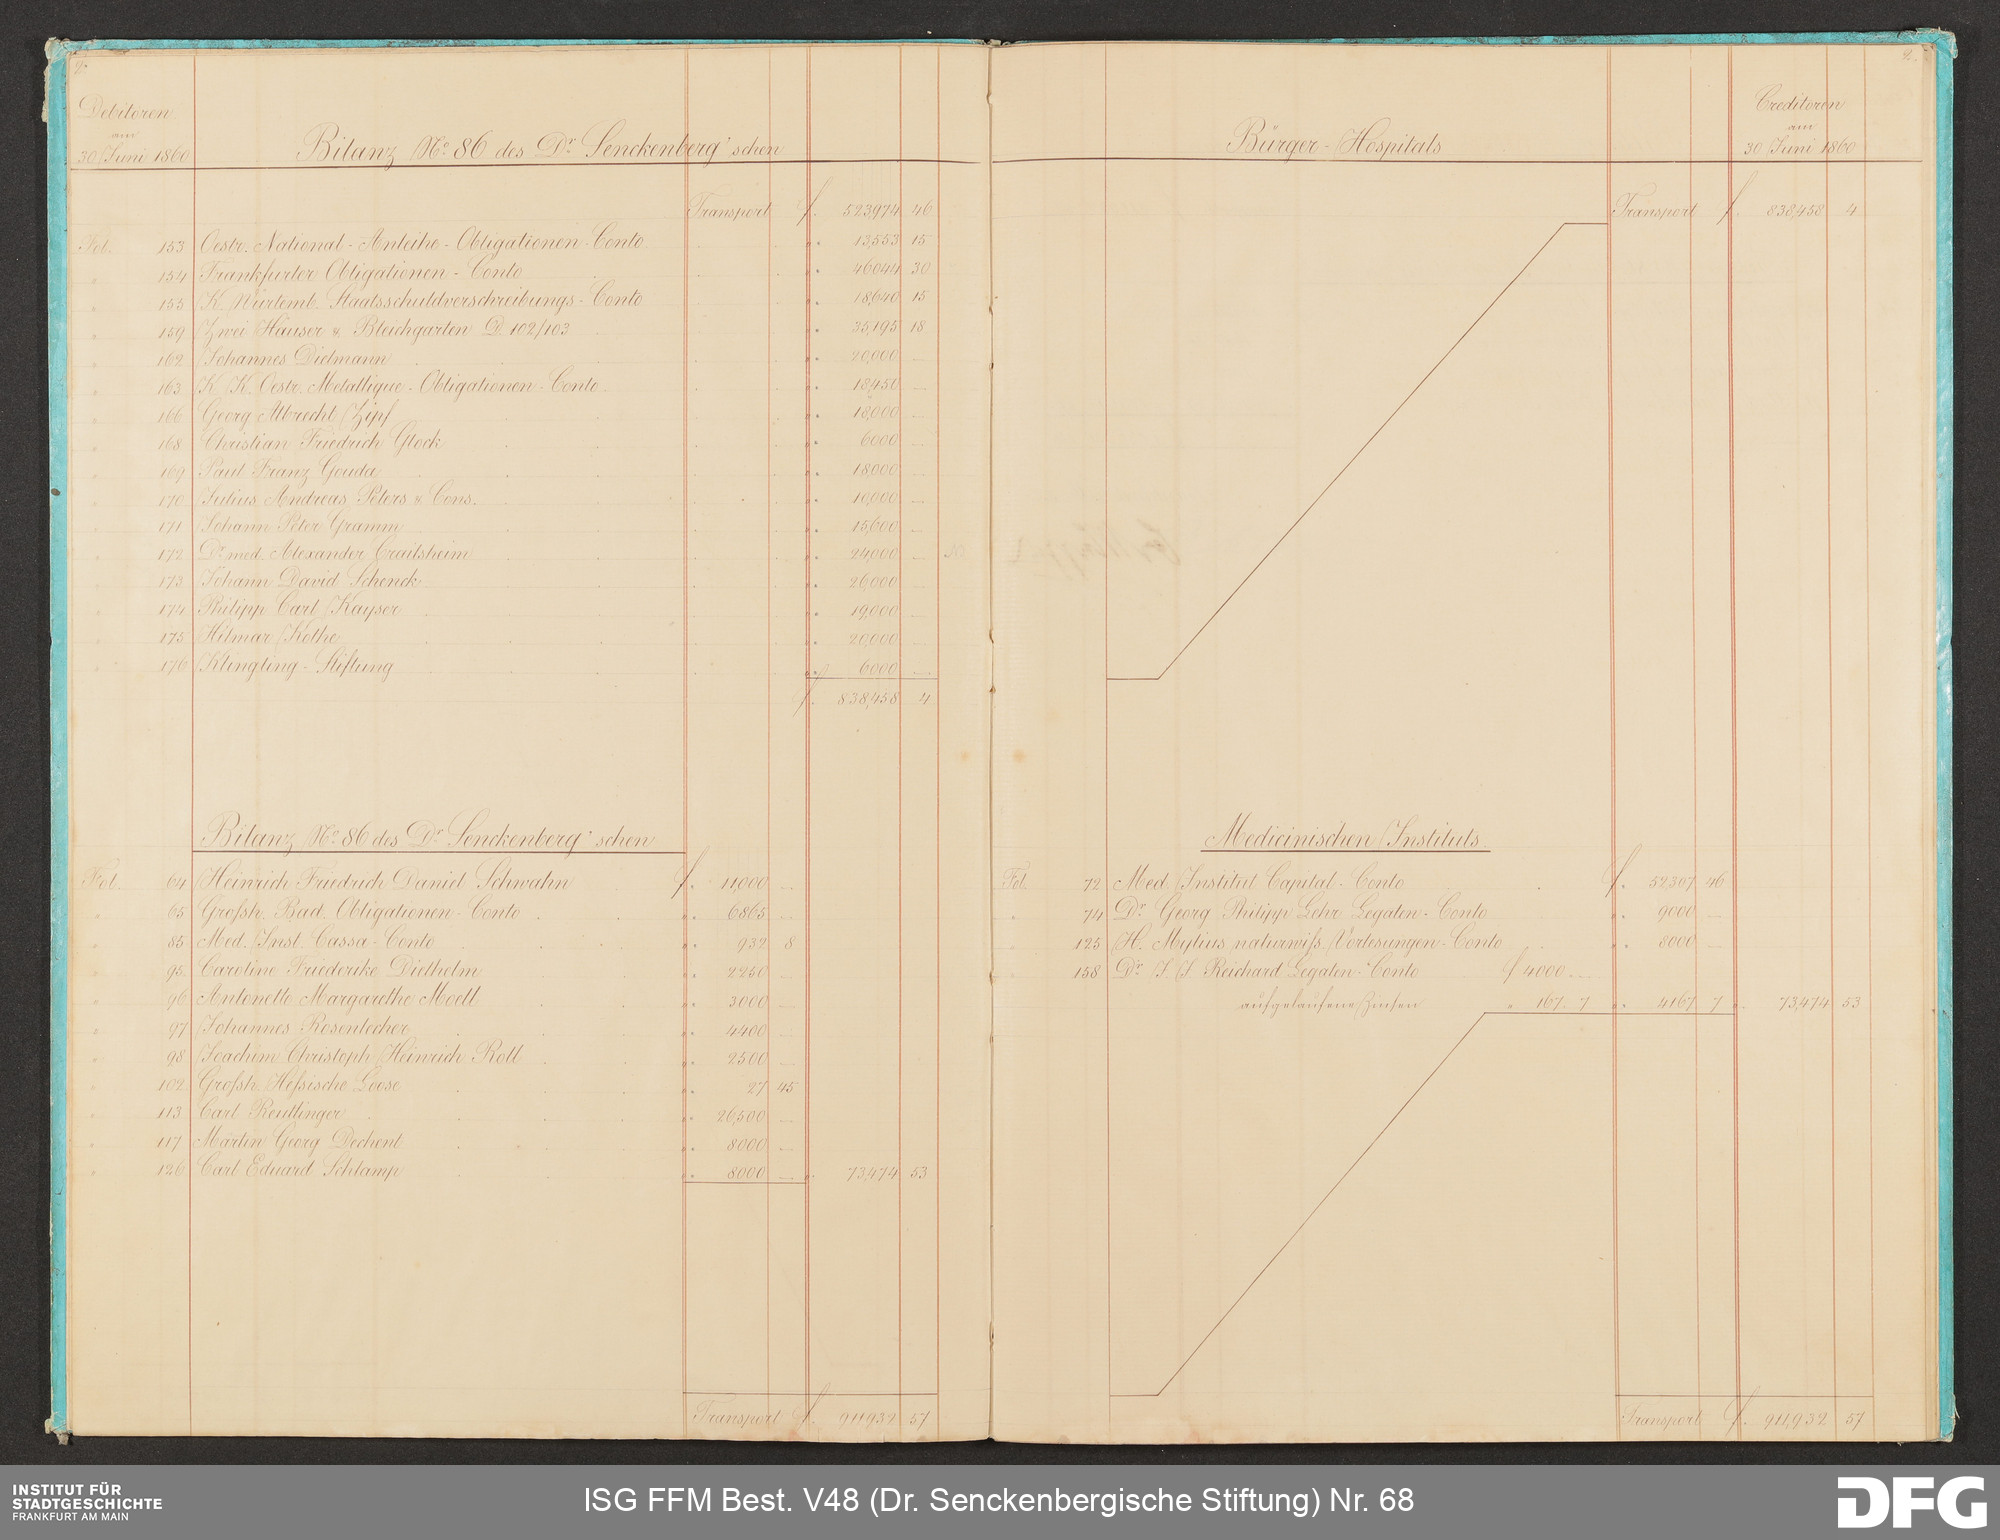 2.
Debitoren
am
30 Juni 1860
Bilanz No. 86 des Dr. Senckenberg'schen
Transport f. 523,974 46
Fol. 153 Oestr. National-Anleihe-Obligationen-Conto " 13,553 15
" 154 Frankfurter Obligationen-Conto " 46044 30
" 155 K. Würtemb. Staatsschuldverschreibungs-Conto " 18,640 15
" 159 Zwei Häuser & Bleichgarten D. 102/103 " 35,195 18
" 162 Johannes Dielmann " 20,000 —
" 163 K. K. Oestr. Metallique-Obligationen-Conto " 18,450 —
" 166 Georg Albrecht Zipf " 18,000 —
" 168 Christian Friedrich Glock " 6000 —
" 169 Paul Franz Gouda " 18,000 —
" 170 Julius Andreas Peters & Cons. " 10,000 —
" 171 Johann Peter Gramm " 15,600 —
" 172 Dr. med. Alexander Crailsheim " 24,000 —
" 173 Johann David Schenck " 26,000 —
" 174 Philipp Carl Kayser " 19,000 —
" 175 Hilmar Kothe " 20,000 —
" 176 Klingling-Stiftung " 6000 —
f. 838,458 4
Bilanz No. 86 des Dr. Senckenberg'schen
Fol. 64 Heinrich Friedrich Daniel Schwahn f. 11000 —
" 65 Grossh. Bad. Obligationen-Conto " 6865 —
" 85 Med. Inst. Cassa-Conto " 932 8
" 95 Caroline Friederike Diethelm " 2250 —
" 96 Antonette Margarethe Moell " 3000 —
" 97 Johannes Rosenlecher " 4400 —
" 98 Joachim Christoph Heinrich Roll " 2500 —
" 102 Grossh. Hessische Loose " 27 45
" 113 Carl Reutlinger " 26,500 —
" 117 Martin Georg Dechent " 8000 —
" 126 Carl Eduard Schlamp " 8000 — " 73,474 53
Transport f. 911,932 57
2.
Bürger-Hospitals
Creditoren
am
30 Juni 1860
Transport f. 838,458 4
Medicinischen Instituts
Fol. 72 Med. Institut Capital-Conto f. 52307 46
" 74 Dr. Georg Philipp Lehr Legaten-Conto " 9000 —
" 125 H. Mylius naturwiss. Vorlesungen-Conto " 8000 —
" 158 Dr. J. J. Reichard Legaten-Conto f 4000 —
aufgelaufene Zinsen " 167. 7 " 4167 7 " 73,474 53
Transport f. 911,932 57
INSTITUT FÜR
STADTGESCHICHTE
FRANKFURT AM MAIN
ISG FFM Best. V48 (Dr. Senckenbergische Stiftung) Nr. 68
DFG